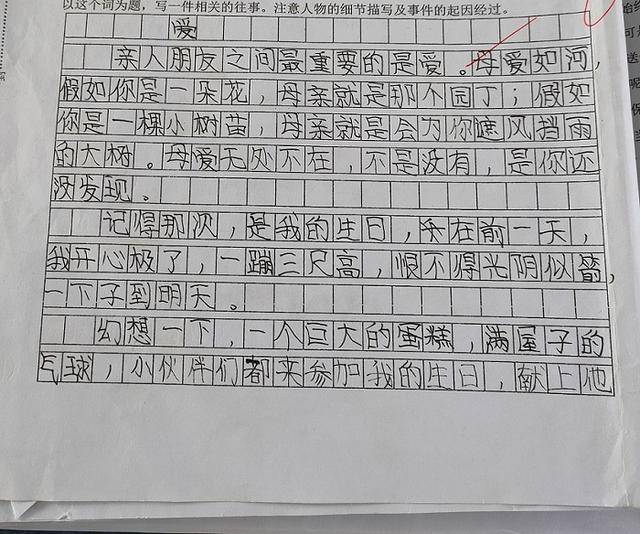 以这个词为题，写一件相关的往事。注意人物的细节描写及事件的起因经过。
爱
亲人朋友之间最重要的是爱。母爱如河，
假如你是一朵花，母亲就是那个园丁；假如
你是一棵小树苗，母亲就是会为你遮风挡雨
的大树。母爱无处不在，不是没有，是你还
没发现。
记得那次，是我的生日，在前一天，
我开心极了，一蹦三尺高，恨不得光阴似箭，
一下子到明天。
幻想一下，一个巨大的蛋糕，满屋子的
气球，小伙伴们都来参加我的生日，献上他